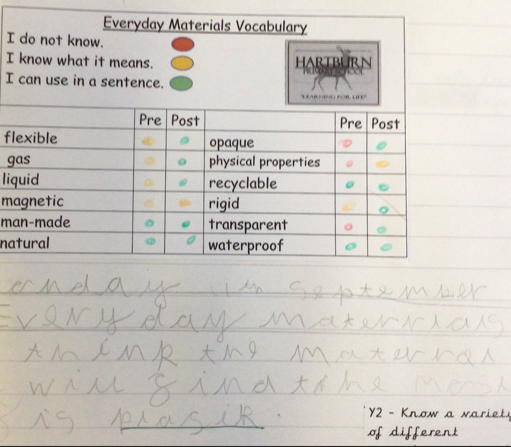 Everyday Materials Vocabulary
I do not know.
I know what it means.
I can use in a sentence.
HARTBURN
PRIMARY SCHOOL
"LEARNING FOR LIFE"
Pre Post Pre Post
flexible opaque
gas physical properties
liquid recyclable
magnetic rigid
man-made transparent
natural waterproof
onday 11th September
Everyday materials
think the materal
will find the most
is plasik.
Y2 - Know a variety
of different